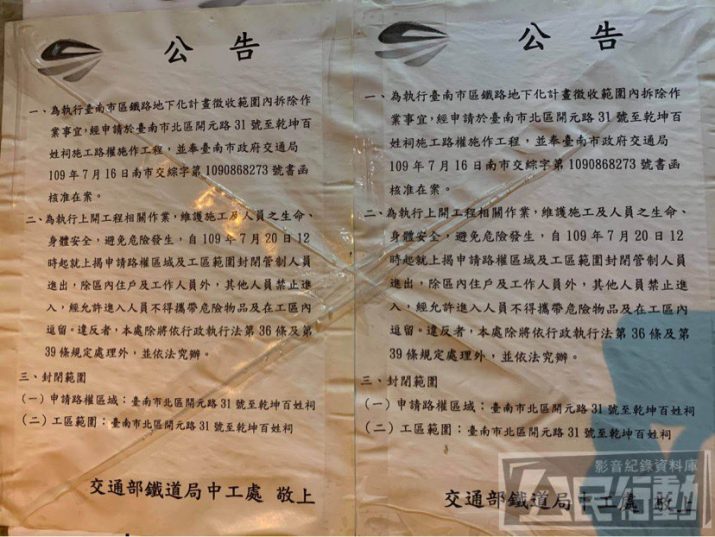 公告
一、為執行臺南市區鐵路地下化計畫徵收範圍內拆除作
業事宜,經申請於臺南市北區開元路31號至乾坤百
姓祠施工路權施作工程,並奉臺南市政府交通局
109年7月16日南市交綜字第1090868273號書函
核准在案。
二、為執行上開工程相關作業,維護施工及人員之生命、
身體安全,避免危險發生,自109年7月20日12
時起就上揭申請路權區域及工區範圍封閉管制人員
進出,除區內住戶及工作人員外,其他人員禁止進
入,經允許進入人員不得攜帶危險物品及在工區內
逗留。違反者,本處除將依行政執行法第36條及第
39條規定處理外,並依法究辦。
三、封閉範圍
(一)申請路權區域:臺南市北區開元路31號至乾坤百姓祠
(二)工區範圍:臺南市北區開元路31號至乾坤百姓祠
交通部鐵道局中工處 敬上
公告
一、為執行臺南市區鐵路地下化計畫徵收範圍內拆除作
業事宜,經申請於臺南市北區開元路31號至乾坤百
姓祠施工路權施作工程,並奉臺南市政府交通局
109年7月16日南市交綜字第1090868273號書函
核准在案。
二、為執行上開工程相關作業,維護施工及人員之生命、
身體安全,避免危險發生,自109年7月20日12
時起就上揭申請路權區域及工區範圍封閉管制人員
進出,除區內住戶及工作人員外,其他人員禁止進
入,經允許進入人員不得攜帶危險物品及在工區內
逗留。違反者,本處除將依行政執行法第36條及第
39條規定處理外,並依法究辦。
三、封閉範圍
(一)申請路權區域:臺南市北區開元路31號至乾坤百姓祠
(二)工區範圍:臺南市北區開元路31號至乾坤百姓祠
交通部鐵道局中工處 敬上
影音紀錄資料庫
公民行動